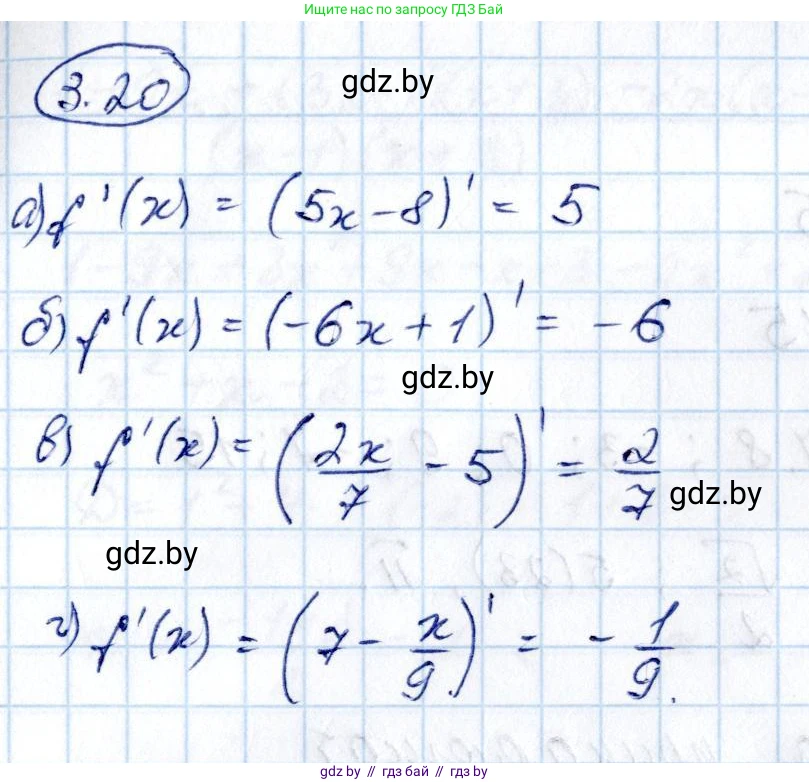 Ищите нас по запросу ГДЗ Бай
3.20
gdz.by
а) f'(x) = (5x - 8)' = 5
б) f'(x) = (-6x + 1)' = -6
gdz.by
в) f'(x) = (2x/7 - 5)' = 2/7
gdz.by
gdz.by
г) f'(x) = (7 - x/9)' = - 1/9.
gdz.by // гдз бай // гдз by